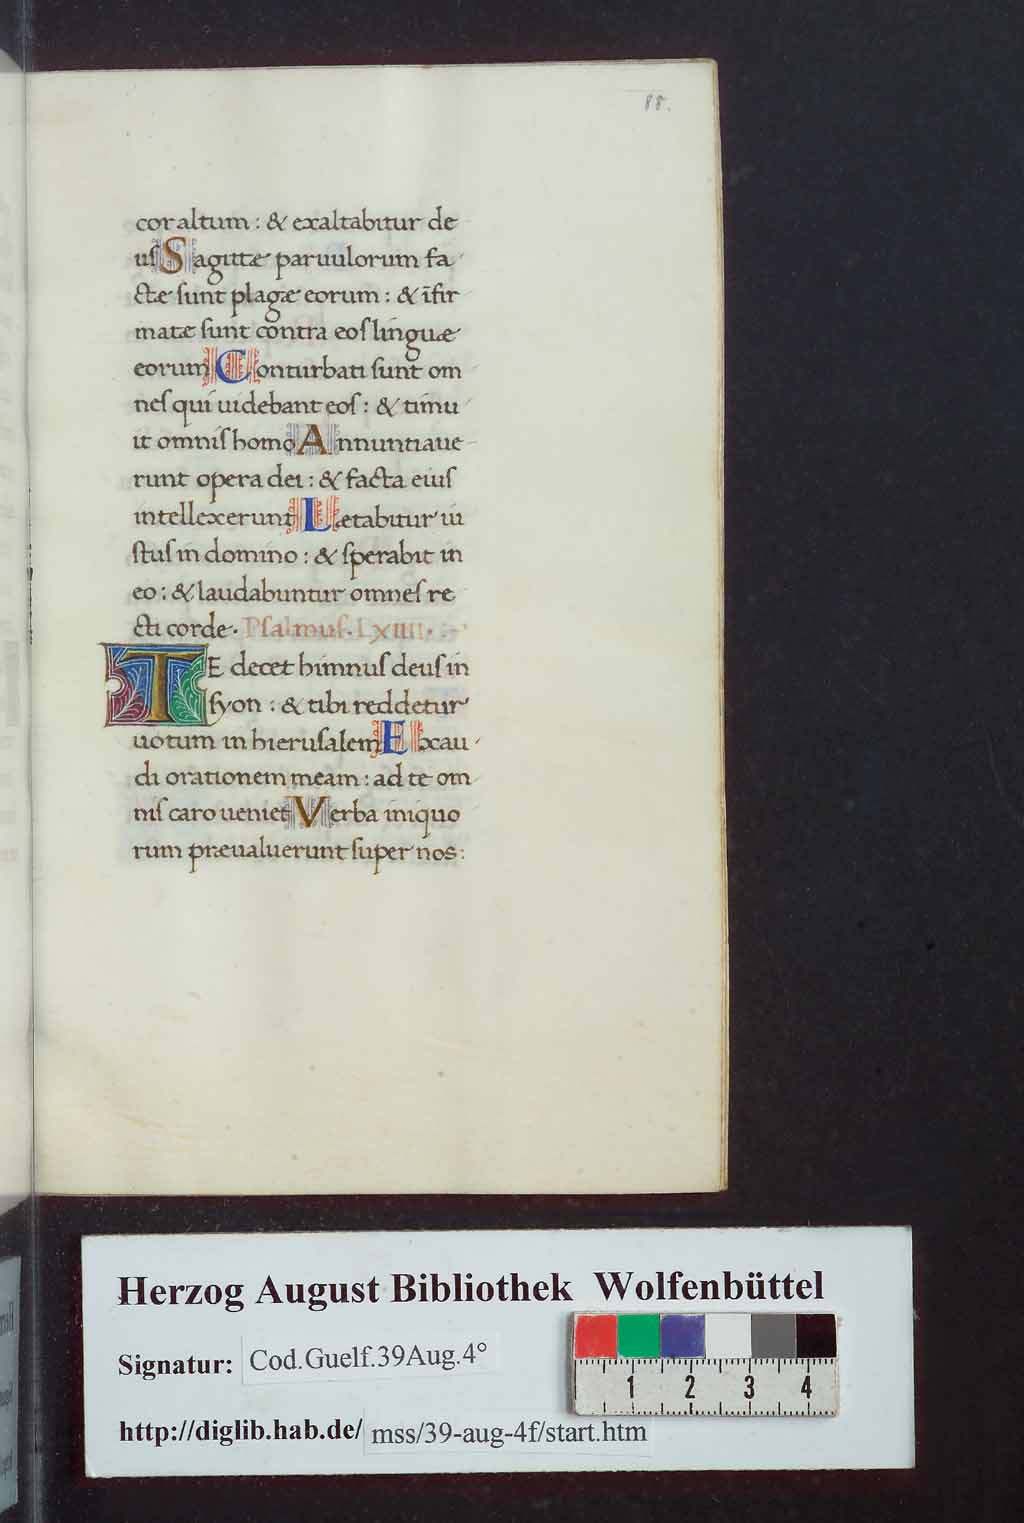 88.
cor altum : & exaltabitur de
us Sagittæ paruulorum fa
ctæ sunt plagæ eorum : & ifir
matæ sunt contra eos linguæ
eorum Conturbati sunt om
nes qui uidebant eos : & timu
it omnis homo Annuntiaue
runt opera dei : & facta eius
intellexerunt Lætabitur iu
stus in domino : & sperabit in
eo : & laudabuntur omnes re
cti corde. Psalmus. LXIIII.
TE decet himnus deus in
syon : & tibi reddetur
uotum in hierusalem Exau
di orationem meam : ad te om
nis caro ueniet Verba iniquo
rum præualuerunt super nos :
Herzog August Bibliothek Wolfenbüttel
Signatur: Cod.Guelf.39Aug.4°
http://diglib.hab.de/ mss/39-aug-4f/start.htm
1 2 3 4